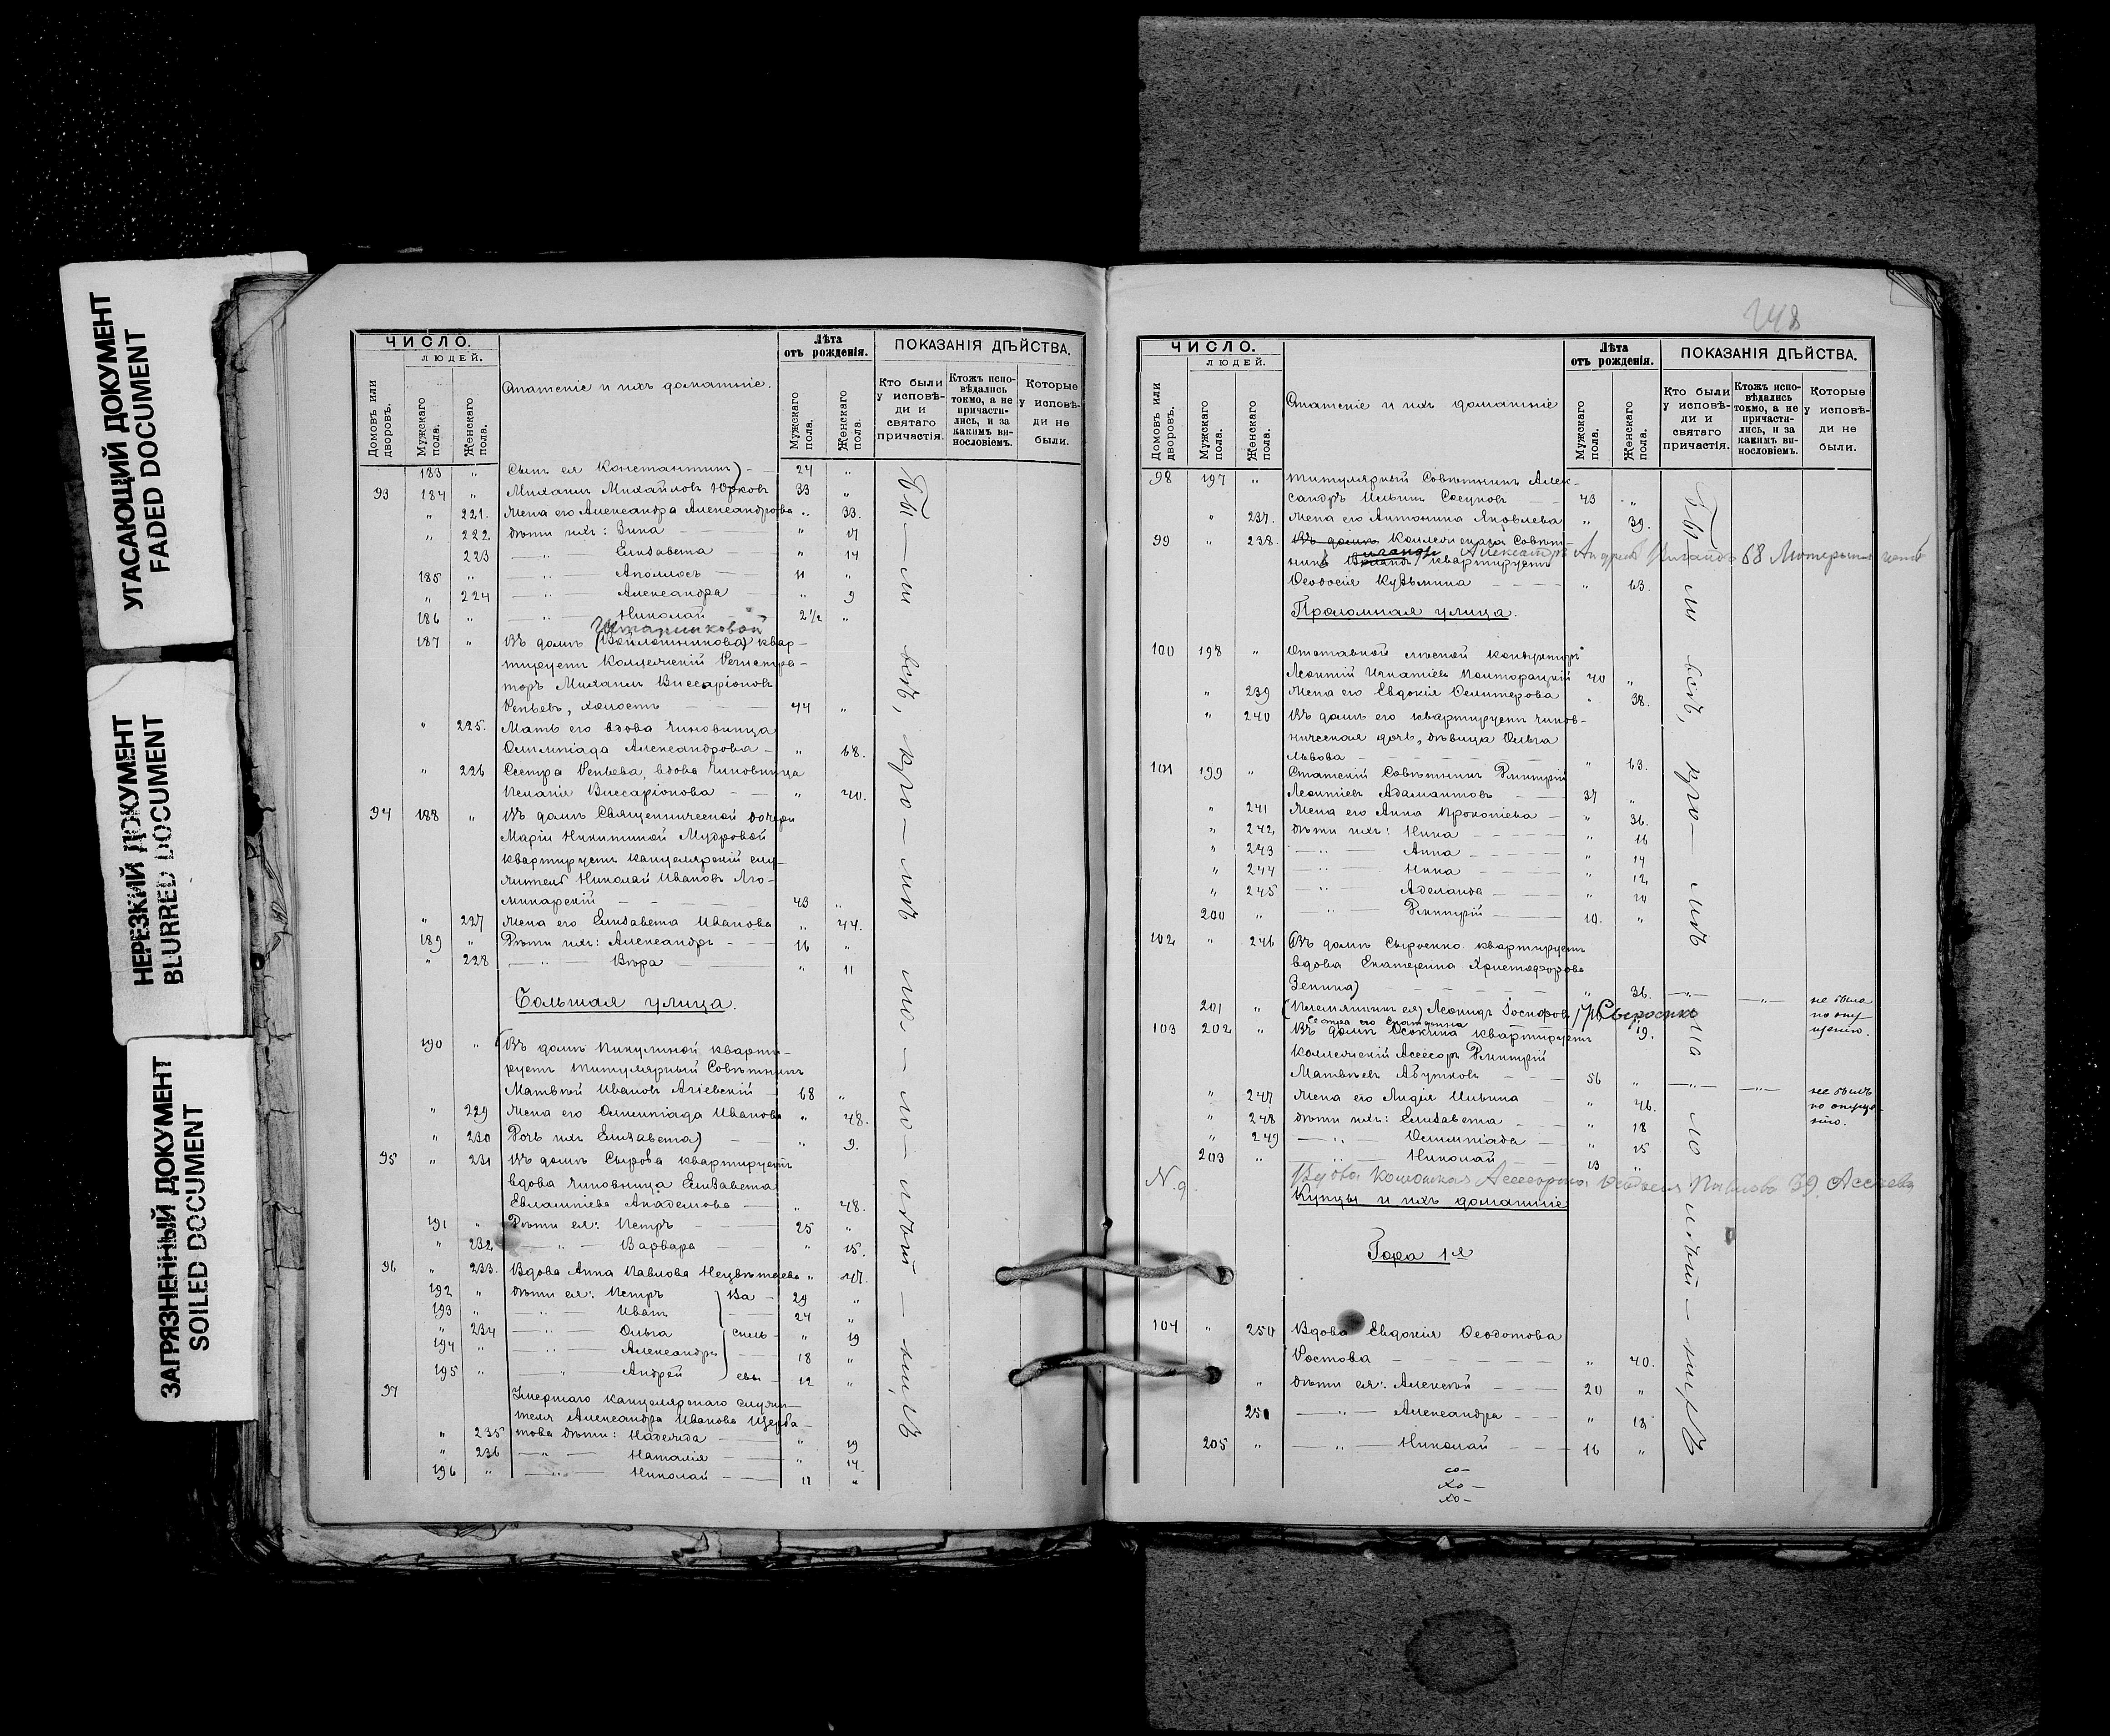 УГАСАЮЩИЙ ДОКУМЕНТ
FADED DOCUMENT
НЕРЕЗКИЙ ДОКУМЕНТ
BLURRED DOCUMENT
ЗАГРЯЗНЕННЫЙ ДОКУМЕНТ
SOILED DOCUMENT
ЧИСЛО.
ЛЮДЕЙ.
Домовъ или дворовъ.
Мужскаго пола.
Женскаго пола.
Статскіе и ихъ домашніе.
Лѣта отъ рожденія.
Мужскаго пола.
Женскаго пола.
ПОКАЗАНІЯ ДѢЙСТВА.
Кто были у исповѣди и святаго причастія.
Ктожъ исповѣдались токмо, а не причастились, и за какимъ винословіемъ.
Которые у исповѣди не были.
183 " Сынъ ея Константинъ) 24 "
93 184 " Михаилъ Михайловъ Юрковъ 33 "
" 221. Жена его Александра Александрова " 33.
" 222 Дѣти ихъ: Зина " 17
223 — " — Елизавета " 14
185 " — " — Аполлосъ 11 "
" 224 — " — Александра " 9
186 " — " — Николай 2½ "
187 " Въ домѣ (Войлошникова) квар-
тируетъ Коллежскій Регистра-
торъ Михаилъ Виссаріоновъ
Репьевъ, холостъ 44 "
" 225. Мать его вдова чиновница
Олимпіада Александрова " 68.
" 226 Сестра Репьева, вдова чиновница
Пелагія Виссаріонова " 40.
94 188 " Въ домѣ Священнической дочери
Маріи Никитиной Мудровой
квартируетъ канцелярскій слу-
житель Николай Ивановъ Лю-
минарскій 43 "
" 227 Жена его Елизавета Иванова " 44.
189 " Дѣти ихъ: Александръ 16 "
" 228 — " — Вѣра " 11
Большая улица.
190 " (Въ домѣ Пикулиной кварти-
руетъ Титулярный Совѣтникъ
Матвѣй Ивановъ Агіевскій 68 "
" 229 Жена его Олимпіада Иванова " 48.
" 230 Дочь ихъ Елизавета) " 9.
95 " 231 Въ домѣ Сырова квартируетъ
вдова чиновница Елизавета
Евлампіева Академова " 48.
191 " Дѣти ея: Петръ 25 "
" 232 — " — Варвара " 15.
96 " 233. Вдова Анна Павлова Нецвѣтаева " 47.
192 " Дѣти ея: Петръ } Ва- 29 "
193 " — " — Иванъ 24 "
" 234 — " — Ольга силь- " 19
194 " — " — Александръ 18 "
195 " — " — Андрей евы 12 "
97 Умершаго канцелярскаго служи-
теля Александра Иванова Щерба-
" 235 това дѣти: Надежда " 19
" 236 — " — Наталія " 14.
196 " — " — Николай 11 "
Бы—ли всѣ, кро—мѣ
248
ЧИСЛО.
ЛЮДЕЙ.
Домовъ или дворовъ.
Мужскаго пола.
Женскаго пола.
Статскіе и ихъ домашніе
Лѣта отъ рожденія.
Мужскаго пола.
Женскаго пола.
ПОКАЗАНІЯ ДѢЙСТВА.
Кто были у исповѣди и святаго причастія.
Ктожъ исповѣдались токмо, а не причастились, и за какимъ винословіемъ.
Которые у исповѣди не были.
98 197 " Титулярный Совѣтникъ Алек-
сандръ Ильинъ Сосуновъ 43 "
" 237. Жена его Антонина Яковлева " 39.
99 " 238. Въ домѣ Коллежскаго Совѣт-
ника квартируетъ
Ѳеодосія Кузьмина " 63.
Проломная улица.
100 198 " Отставной лѣсной кондукторъ
Леонтій Игнатіевъ Полторацкій 40 "
" 239 Жена его Евдокія Селитерова " 38.
" 240 Въ домѣ его квартируетъ чинов-
ническая дочь, дѣвица Ольга
Львова " 63.
101 199 " Статскій Совѣтникъ Дмитрій
Леонтіевъ Адамантовъ 37 "
" 241 Жена его Анна Прокопіева " 36.
" 242 Дѣти ихъ: Нина " 16
" 243 — " — Анна " 14
" 244 — " — Нина " 12
" 245 — " — Аделаида " 10
200 " " Дмитрій 10. "
102 " 246 (Въ домѣ Сыроенко квартируетъ
вдова Екатерина Христофорова
Зенина) " 36. — " — — " — не была
по опу
щенію.
201 " (Племянникъ ея) Леонидъ 17 Сыроенко
Сестра его Екатерина 19.
103 202 " Въ домѣ Осокина квартируетъ
Коллежскій Асессоръ Дмитрій
Матвѣевъ Абутковъ 56 " — " — — " — не былъ
по опуще-
нію.
" 247 Жена его Лидія Ильина " 46.
" 248 Дѣти ихъ: Елизавета " 18
" 249 — " — Олимпіада " 15
203 " — " — Николай 13 "
Купцы и ихъ домашніе
Гора 1я
104 " 250 Вдова Евдокія Ѳеодотова
Ростова " 40.
" Дѣти ея: Алексѣй 20 "
251 — " — Александра " 18
205 " — " — Николай 16 "
Бы—ли всѣ, кро—мѣ